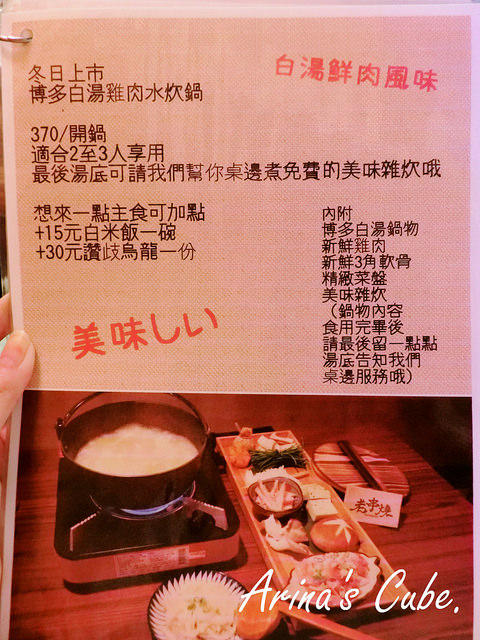 白湯鮮肉風味
冬日上市
博多白湯雞肉水炊鍋
370/開鍋
適合2至3人享用
最後湯底可請我們幫你桌邊煮免費的美味雜炊哦
想來一點主食可加點
+15元白米飯一碗
+30元讚歧烏龍一份
內附
博多白湯鍋物
新鮮雞肉
新鮮3角軟骨
精緻菜盤
美味雜炊
（鍋物內容
食用完畢後
請最後留一點點
湯底告知我們
桌邊服務哦）
美味しい
Arina's Cube.